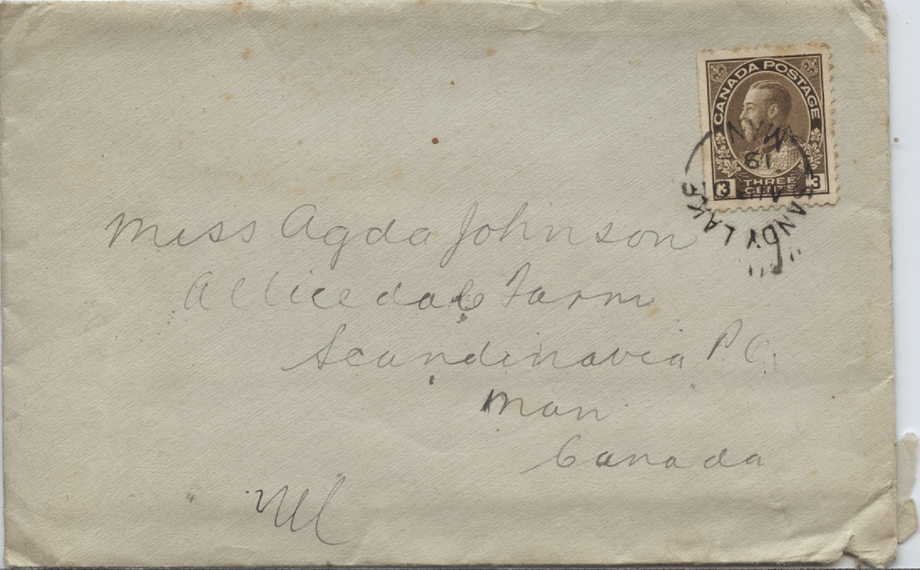 CANADA POSTAGE
3 THREE CENTS 3
SANDY LAKE
MAN
Miss Agda Johnson
Allicedale Farm
Scandinavia P.O.
Man
Canada